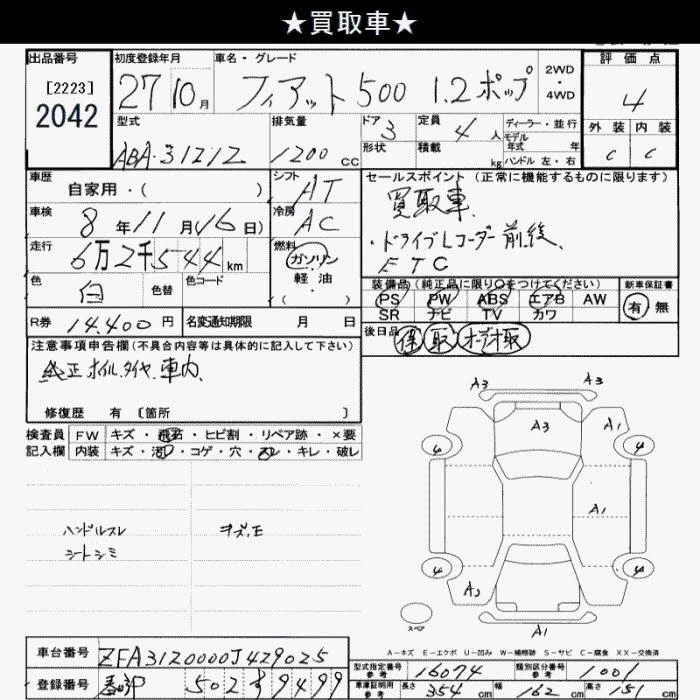 ★買取車★
出品番号 初度登録年月 車名・グレード 評価点
[2223] 2042 27 10月 フィアット500 1.2ポップ 2WD・4WD 4
型式 排気量 ドア 3 定員 4人 ディーラー・並行 外装 内装
モデル年式 年
ABA-31212 1200cc 形状 積載 kg ハンドル 左・右 C C
車歴 シフト AT セールスポイント(正常に機能するものに限ります)
自家用・( ) 買取車
車検 8年11月16日) 冷房 AC ・ドライブレコーダー前後、
走行 6万2千544km 燃料 ガソリン・軽油 ETC
色 白 色替 色コード 装備品(純正品に限り○をつけてください) 新車保証書
PS PW ABS エアB AW 有 無
SR ナビ TV カワ
R券 14,400円 名変通知期限 月 日 後日品 保 取 オーデオ取
注意事項申告欄(不具合内容等は具体的に記入して下さい)
純正ホイル、タイヤ、車内、
修復歴 有 [箇所 ]
検査員 FW キズ・飛石・ヒビ割・リペア跡・×要
記入欄 内装 キズ・汚レ・コゲ・穴・スレ・キレ・破レ
A3 A3
A3 A1
4 4
A1
4 4
A2
A1
ハンドルスレ
シートシミ
スペア
A-キズ E-エクボ U-凹み W-補修跡 S-サビ C-腐食 XX-交換済
車台番号 ZFA3120000J429025 型式指定番号 参考 16074 類別区分番号 参考 1001
登録番号 春日部 502 9499 車庫証明用 参考 長さ 354cm 幅 162cm 高さ 151cm